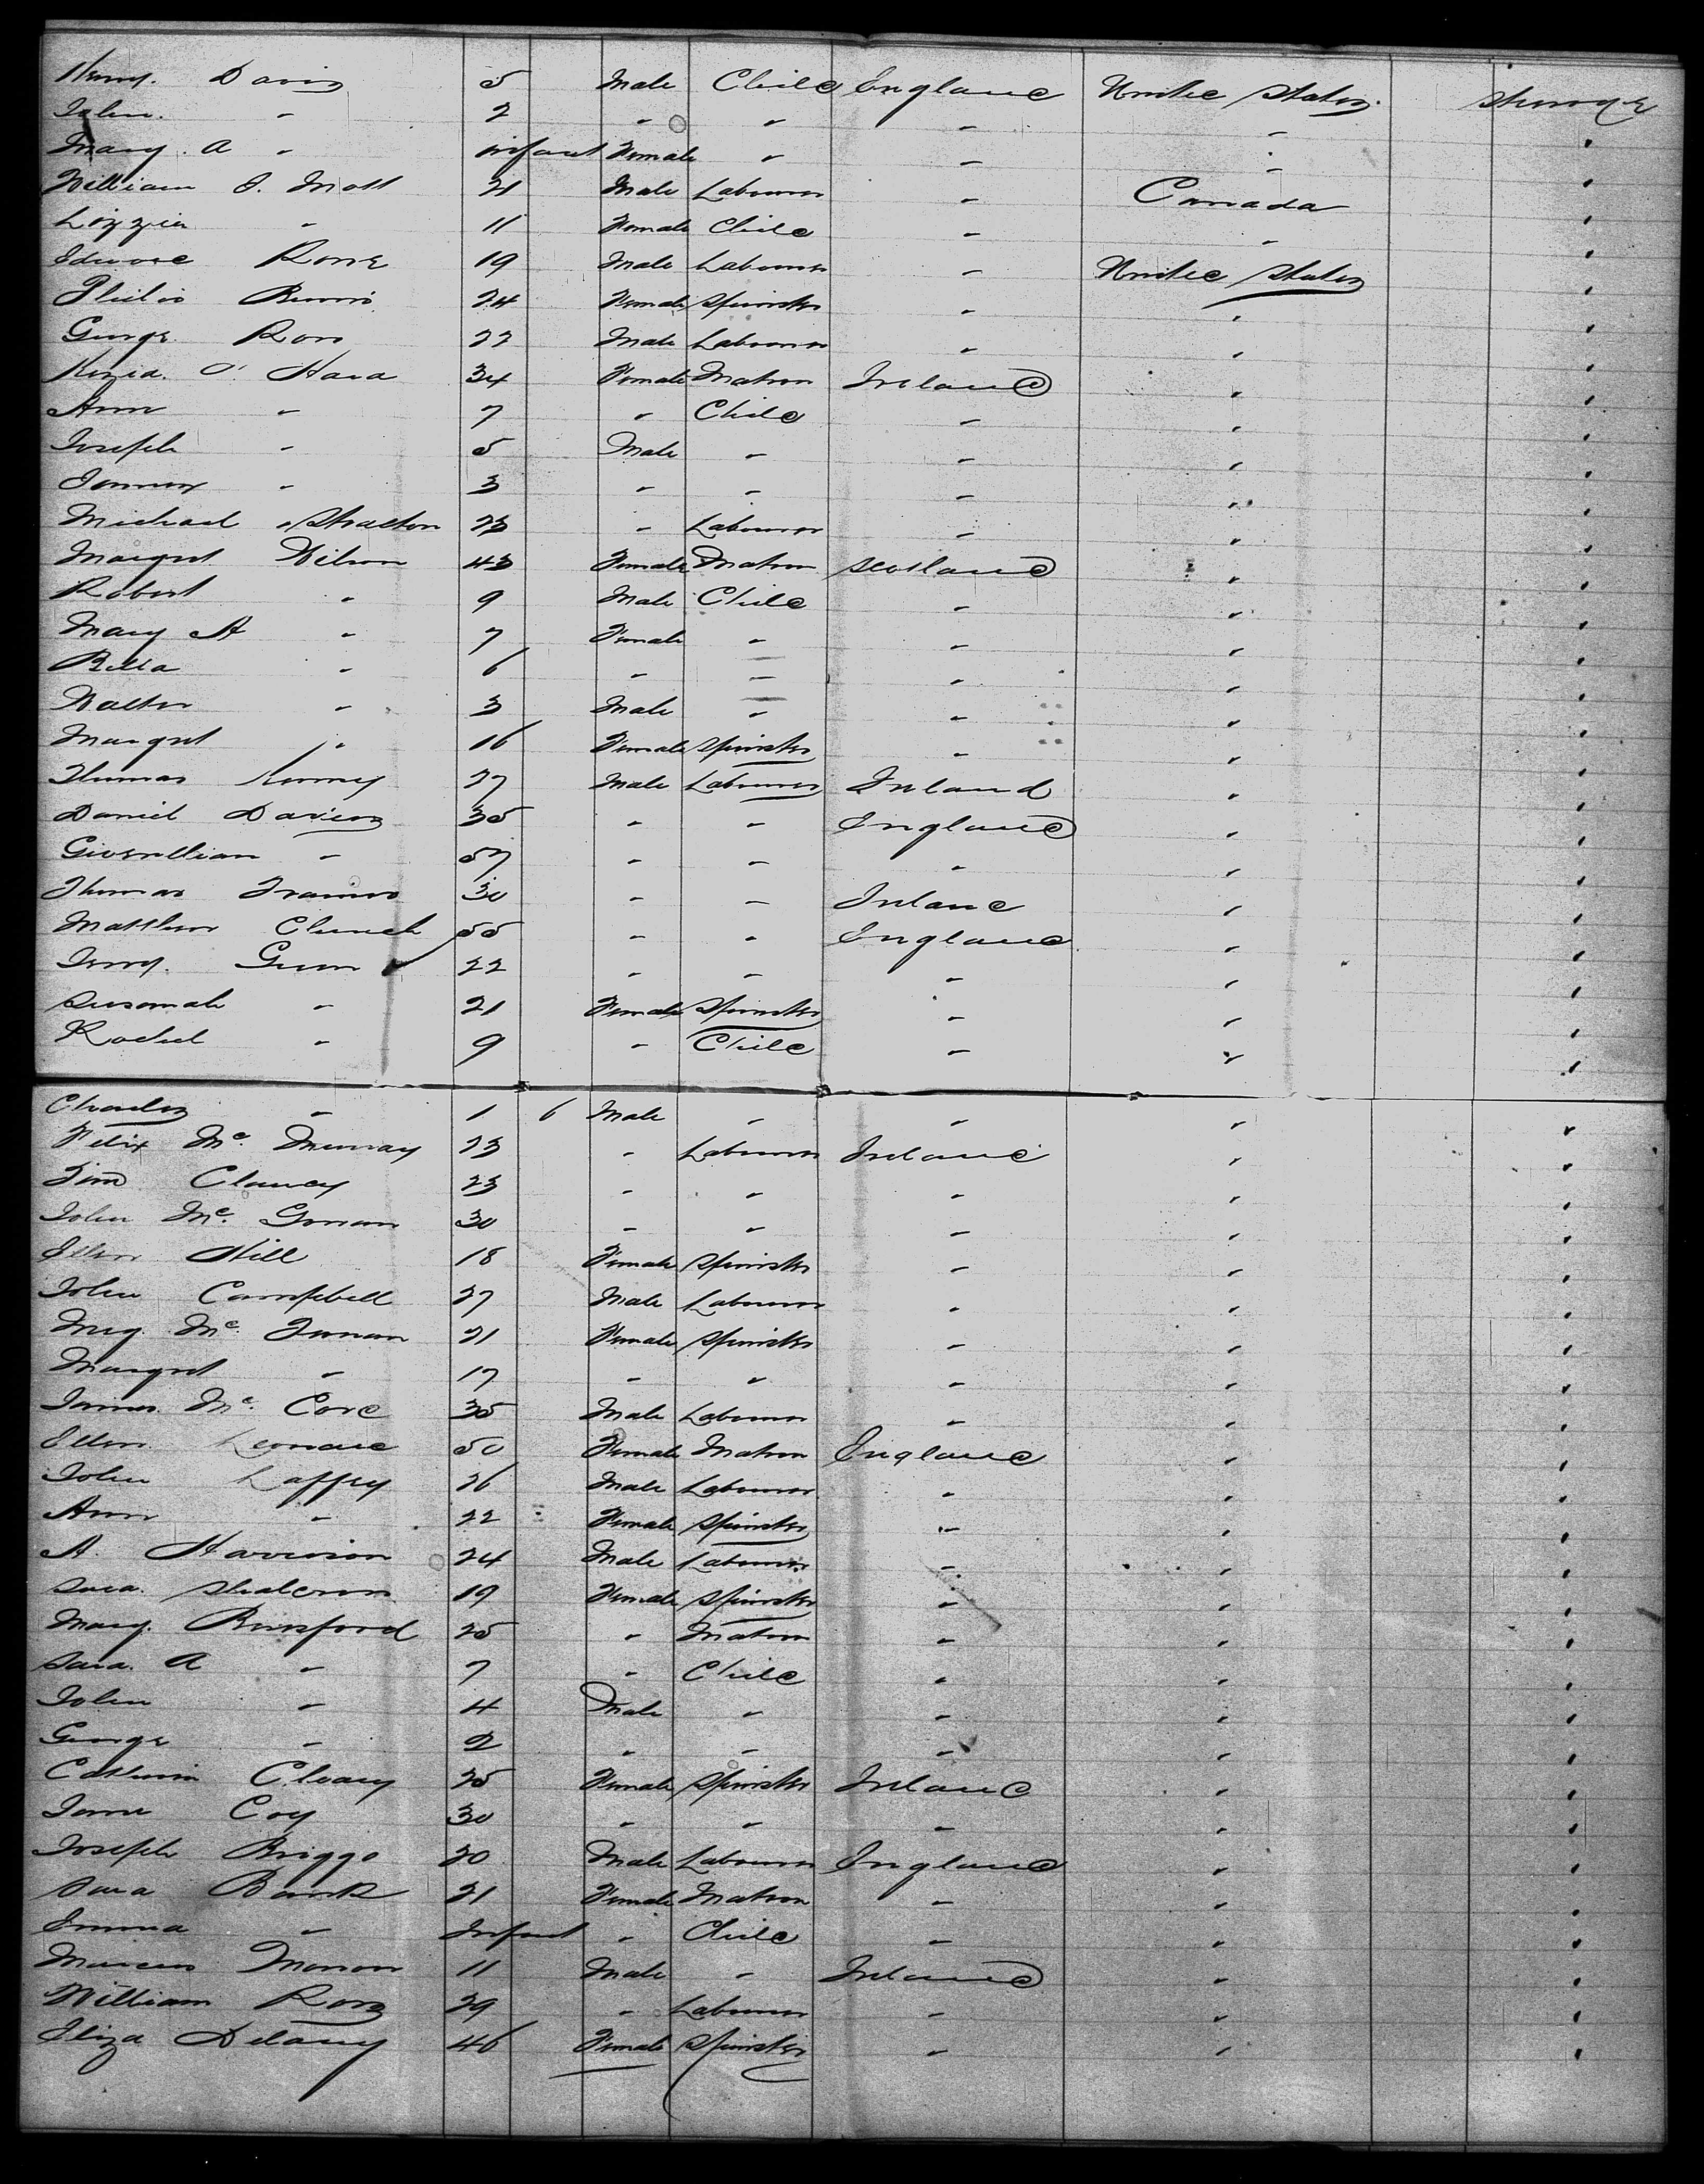 Henry. Davis 5 Male Child England United States. Steerage
John. " 2 " " " " "
Mary. A " infant Female " " " "
William J. Mott 21 Male Labourer " Canada "
Lizzie " 11 Female Child " " "
Edward Rowe 19 Male Labourer " United States "
24 Female Spinster " " "
George Ross 22 Male Labourer " " "
O' Hara 34 Female Matron Ireland " "
Ann " 7 " Child " " "
Joseph " 5 Male " " " "
" 3 " " " " "
Michael 23 " Labourer " " "
Margret Wilson 43 Female Matron Scotland " "
Robert " 9 Male Child " " "
Mary A " 7 Female " " " "
Bella " 6 " " " " "
Walter " 3 Male " " " "
Margret " 16 Female Spinster " " "
Thomas 27 Male Labourer Ireland " "
Daniel Davies 35 " " England " "
" 57 " " " " "
Thomas 30 " " Ireland " "
Matthew Church 55 " " England " "
22 " " " " "
Susanah " 21 Female Spinster " " "
Rachel " 9 " Child " " "
Charles " 1 6 Male " " " "
Felix Mc. Murray 23 " Labourer Ireland " "
Clancy 23 " " " " "
John Mc. 30 " " " " "
Ellen Hill 18 Female Spinster " " "
John Campbell 27 Male Labourer " " "
Mc. 21 Female Spinster " " "
Margret " 17 " " " " "
James. Mc. 35 Male Labourer " " "
Ellen Leonard 50 Female Matron England " "
John Laffey 26 Male Labourer " " "
Ann " 22 Female Spinster " " "
A. Harrison 24 Male Labourer " " "
Sara. 19 Female Spinster " " "
Mary. 25 " Matron " " "
Sara. A " 7 " Child " " "
John " 4 Male " " " "
George " 2 " " " " "
Cleary 25 Female Spinster Ireland " "
Jane Coy 30 " " " " "
Joseph Briggs 20 Male Labourer England " "
Sara 21 Female Matron " " "
Emma " Infant " Child " " "
11 Male " Ireland " "
William Ross 29 " Labourer " " "
Eliza Delany 46 Female Spinster " " "